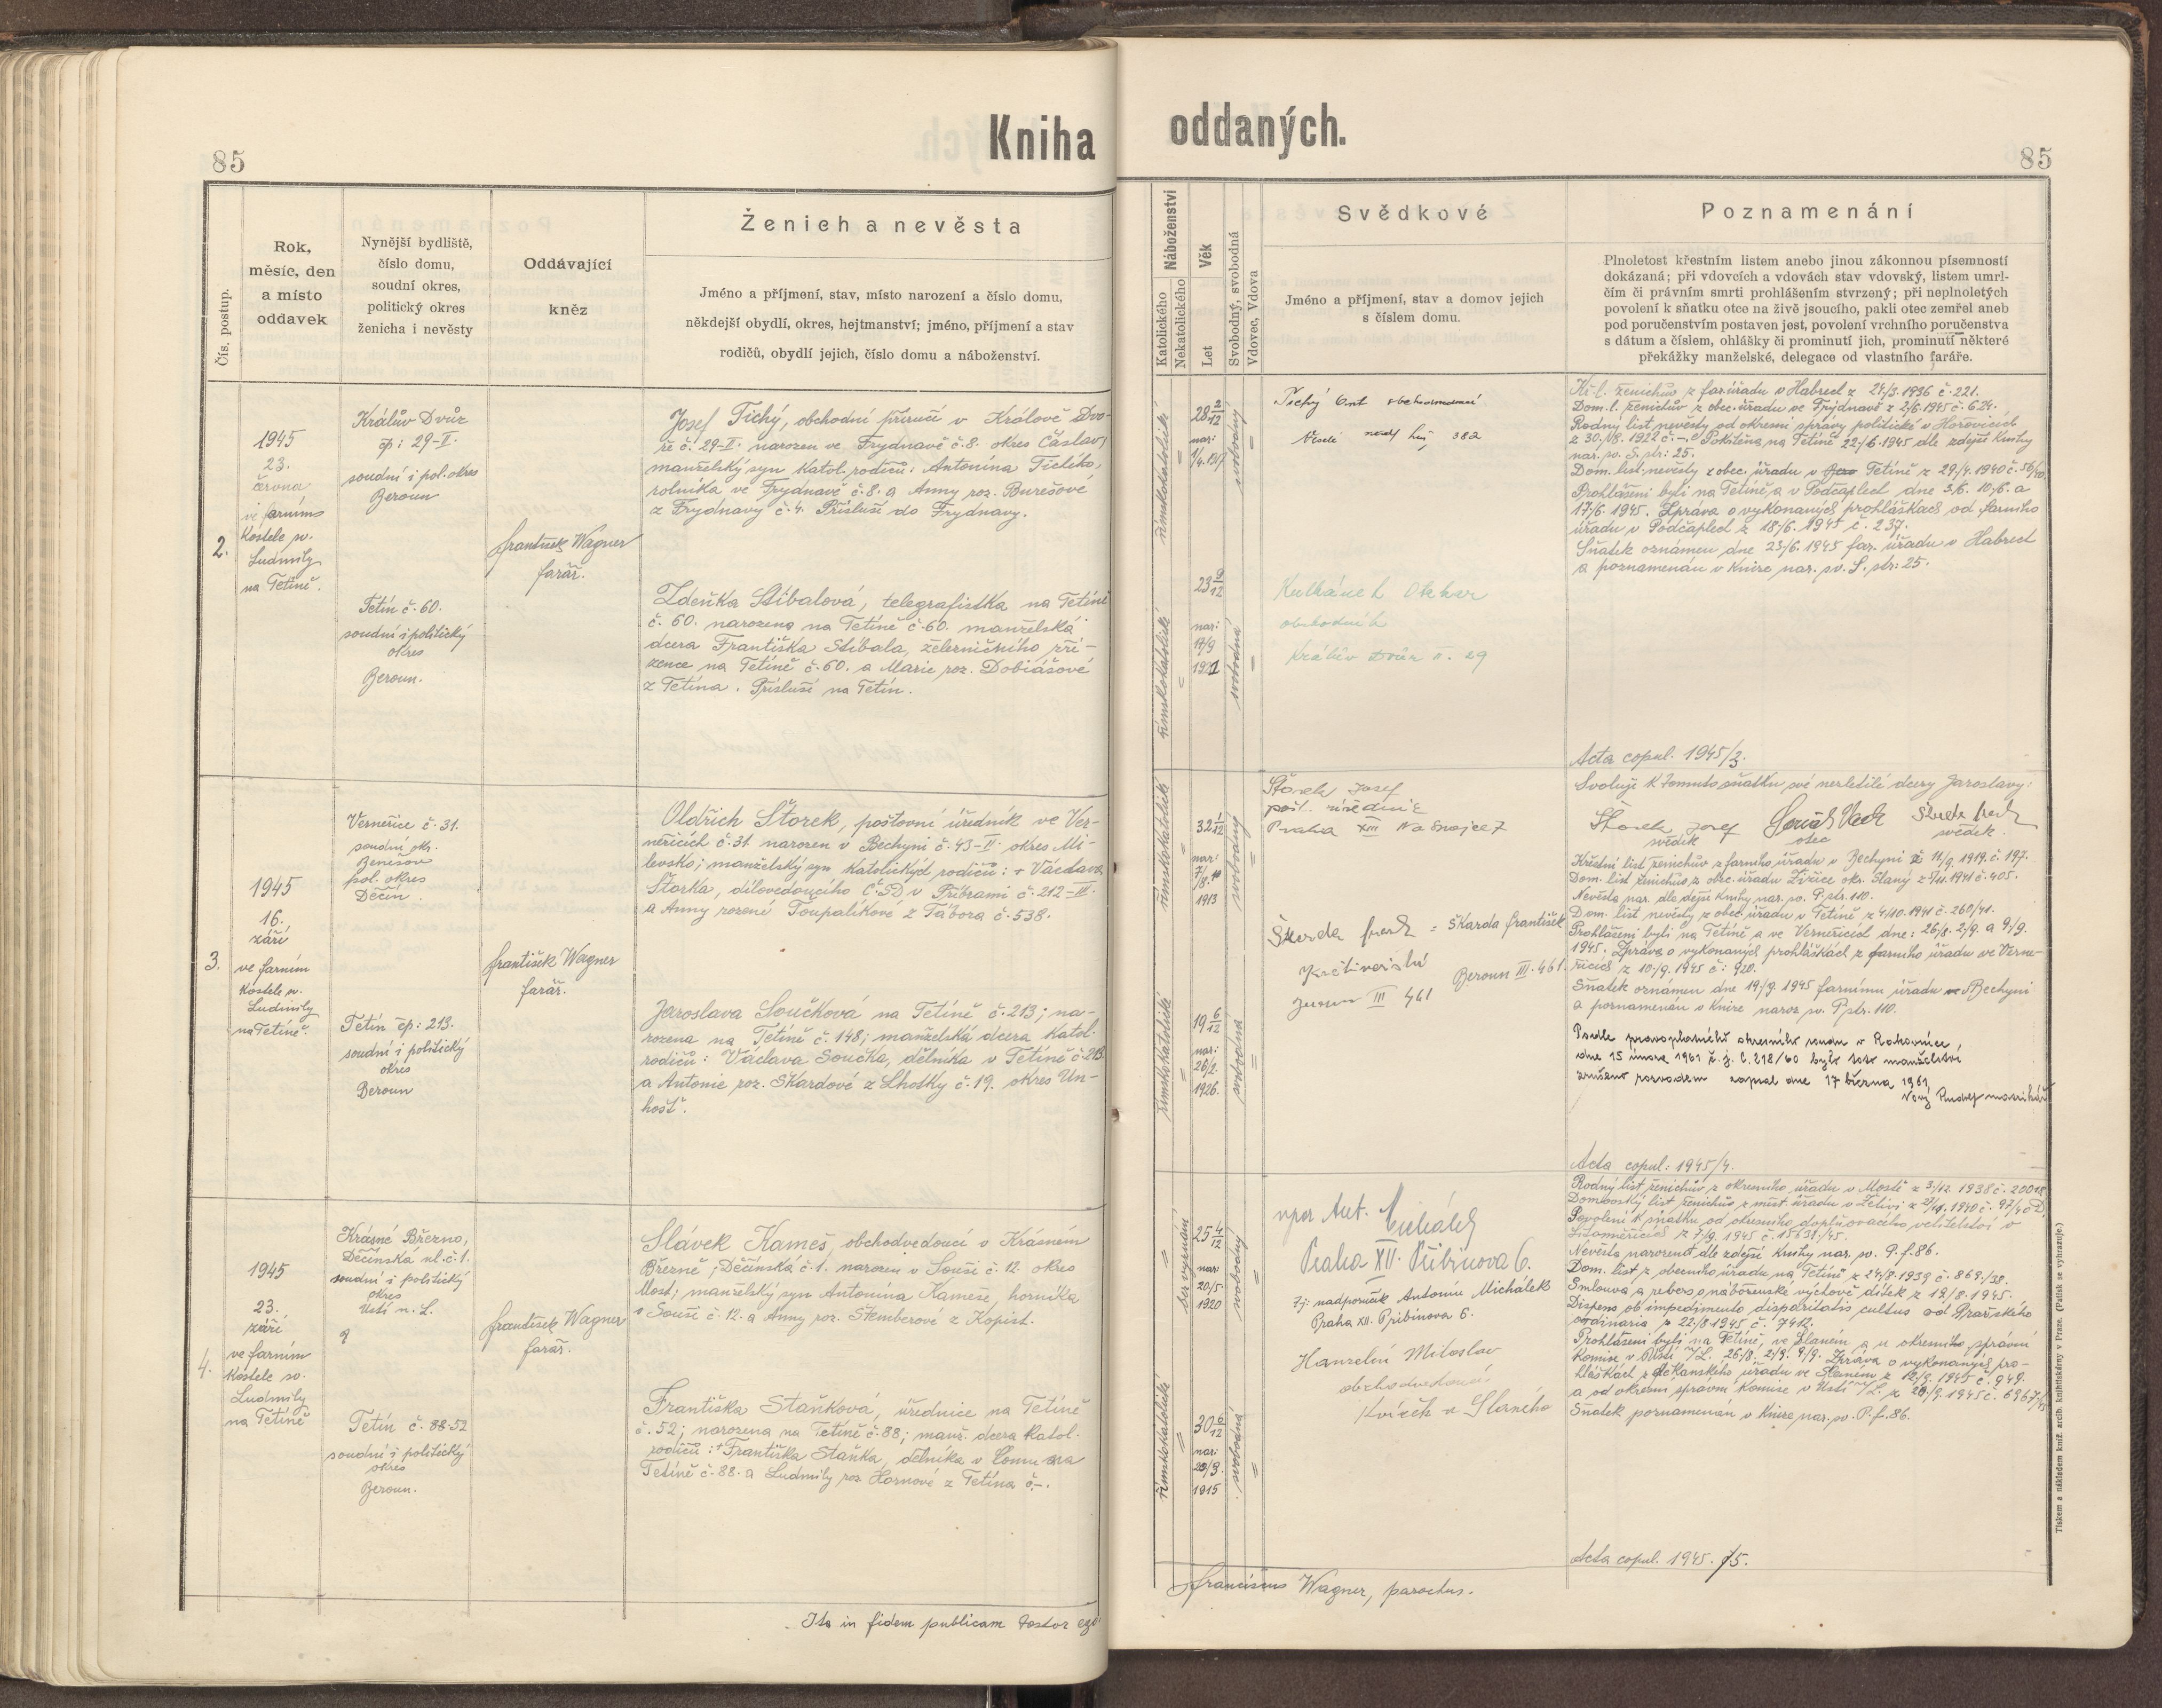 Kniha oddaných.
85
85
Čís. postup.
Rok,
měsíc, den
a místo
oddavek
Nynější bydliště,
číslo domu,
soudní okres,
politický okres
ženicha i nevěsty
Oddávající
kněz
Ženich a nevěsta
Jméno a příjmení, stav, místo narození a číslo domu,
někdejší obydlí, okres, hejtmanství; jméno, příjmení a stav
rodičů, obydlí jejich, číslo domu a náboženství.
Náboženství
Katolického
Nekatolického
Věk
Let
Svobodný, svobodná
Vdovec, Vdova
Svědkové
Jméno a příjmení, stav a domov jejich
s číslem domu.
Poznamenání
Plnoletost křestním listem anebo jinou zákonnou písemností
dokázaná; při vdovcích a vdovách stav vdovský, listem umrl-
čím či právním smrti prohlášením stvrzený; při neplnoletých
povolení k sňatku otce na živě jsoucího, pakli otec zemřel aneb
pod poručenstvím postaven jest, povolení vrchního poručenstva
s dátum a číslem, ohlášky či prominutí jich, prominutí některé
překážky manželské, delegace od vlastního faráře.
2.
1945
23.
června
ve farním
kostele sv.
Ludmily
na Tetíně.
Králův Dvůr
čp: 29-II.
soudní i pol. okres
Beroun
Tetín č. 60.
soudní i politický
okres
Beroun.
František Wagner
farář.
Josef Tichý, obchodní příručí v Králově Dvo-
ře č. 29-II. narozen ve Frydnavě č. 8. okres Čáslav,
manželský syn katol. rodičů: Antonína Tichého,
rolníka ve Frydnavě č. 8. a Anny roz. Burešové
z Frydnavy č. 4. Přísluší do Frydnavy.
Zdeňka Stíbalová, telegrafistka na Tetíně
č. 60. narozena na Tetíně č. 60. manželská
dcera Františka Stíbala, železničního zří-
zence na Tetíně č. 60. a Marie roz. Dobiášové
z Tetína. Přísluší na Tetín.
římskokatolické
28 2/12
nar:
1/4. 1917
svobodný
římskokatolické
23 9/12
nar:
17/9
1921
svobodná
Tichý
382
obchodník
Králův Dvůr II. 29
Kř. l. ženichův z far. úřadu v Habrech z 24/3. 1936 č. 221.
Dom. l. ženichův z obec. úřadu ve Frýdnavě z 2/6. 1945 č. 624.
Rodný list nevěsty od okresní správy politické v Hořovicích
z 30./8. 1922 č. -. Pokřtěna na Tetíně 22/6. 1945 dle zdejší knihy
nar. sv. S. str: 25.
Dom. list. nevěsty z obec. úřadu v Tetíně z 29/4. 1940 č. 56/40.
Prohlášeni byli na Tetíně a v Podčaplech dne 3/6. 10/6. a
17/6. 1945. Zpráva o vykonaných prohláškách od farního
úřadu v Podčaplech z 18/6. 1945 č. 237.
Sňatek oznámen dne 23/6. 1945 far. úřadu v Habrech
a poznamenán v knize nar. sv. S. str: 25.
Acta copul. 1945/3.
3.
1945
16.
září
ve farním
kostele sv.
Ludmily
na Tetíně.
Verneřice č. 31.
soudní okr.
Benešov
pol. okres
Děčín.
Tetín čp: 213.
soudní i politický
okres
Beroun
František Wagner
farář.
Oldřich Štorek, poštovní úředník ve Ver-
neřicích č. 31 narozen v Bechyni č. 43-II. okres Mi-
levsko; manželský syn katolických rodičů: + Václava
Štorka, dílovedoucího ČSD v Příbrami č. 212-III.
a Anny rozené Ťoupalíkové z Tábora č. 538.
Jaroslava Součková na Tetíně č. 213; na-
rozena na Tetíně č. 148; manželská dcera katol.
rodičů: Václava Součka, dělníka v Tetíně č. 213
a Antonie roz. Škardové z Lhotky č. 19. okres Un-
hošť.
římskokatolické
32 1/12
nar:
7/8.
1913
svobodný
římskokatolické
19 6/12
nar:
26/2.
1926.
svobodná
Štorek Josef
pošt. úředník
Praha XIII Na Snajce 7
Škarda = Škarda František
Beroun III. 461.
Beroun III 461
Svoluji k tomuto sňatku své nezletilé dcery Jaroslavy:
Štorek Josef
svědek otec svědek.
Křestní list ženichův z farního úřadu v Bechyni z 11/9. 1919. č. 197.
Dom. list ženichův z obec. úřadu Zvice okr. Slaný z 7/11. 1941 č. 405.
Nevěsta nar. dle dejší knihy nar. sv. P. str. 110.
Dom. list nevěsty z obec. úřadu v Tetíně z 4/10. 1941 č. 260/41.
Prohlášeni byli na Tetíně a ve Verneřicích dne: 26/8. 2/9. a 9/9.
1945. Zpráva o vykonaných prohláškách z farního úřadu ve Verne-
řicích z 10/9. 1945 č: 920.
Sňatek oznámen dne 19/9. 1945 farnímu úřadu v Bechyni
a poznamenán v knize naroz. sv. P. str. 110.
Podle pravoplatného okresního soudu v Rakovníce,
dne 15 února 1961 č. j. C. 218/60 bylo toto manželství
zrušeno rozvodem zapsal dne 17 března 1961
Nový Rudolf matrikář
Acta copul: 1945/4.
4.
1945
23.
září
ve farním
kostele sv.
Ludmily
na Tetíně
Krásné Březno,
Děčínská ul. č. 1.
soudní i politický
okres
Ústí n. L.
a
Tetín č. 88. 52
soudní i politický
okres
Beroun.
František Wagner
farář.
Slávek Kameš, obchodvedoucí v Krásném
Březně, Děčínská č. 1. narozen v Souši č. 12. okres
Most; manželský syn Antonína Kameše, horníka
v Souši č. 12. a Anny roz. Štemberové z Kopist.
Františka Staňková, úřednice na Tetíně
č. 52; narozena na Tetíně č. 88; manž. dcera katol.
rodičů: + Františka Staňka, dělníka v lomu na
Tetíně č. 88. a Ludmily roz. Hornové z Tetína č. -.
bez vyznání
25 4/12
nar:
20/5.
1920
svobodný
římskokatolické
30 6/12
nar:
20/3.
1915
svobodná
npor Ant. Michálek
Praha XII. Přibinova 6.
Tj: nadporučík Antonín Michálek
Praha XII. Přibinova 6.
Hanzelín Miloslav
obchodvedoucí
Kvíček u Slaného
Rodný list ženichův z okresního úřadu v Mostě z 3/12. 1938 č. 20018.
Domovský list ženichův z míst. úřadu v Želivi z 27/11. 1940 č. 97/40 D.
Povolení k sňatku od okresního doplňovacího velitelství v
Litoměřicích z 7/9. 1945 č. 15631/45.
Nevěsta narozena dle zdejší knihy nar. sv. P. f. 86.
Dom. list z obecního úřadu na Tetíně z 24/8. 1939 č. 869./39.
Smlouva a revers o náboženské výchově dítek z 19/8. 1945.
Dispens ob impedimento disparitatis cultus od Pražského
ordinaria z 22/8 1945 č. 7412.
Prohlášeni byli na Tetíně, ve Slaném a u okresního správní
komise v Ústí n/L. 26/8. 2/9. 9/9. Zpráva o vykonaných pro-
hláškách z děkanského úřadu ve Slaném z 12/9. 1945 č. 949.
a od okresní správní komise v Ústí n/L. z 20/9. 1945 č. 6967/45
Sňatek poznamenán v knize nar. sv. P. f. 86.
Acta copul. 1945. /5.
Ita in fidem publicam testor ego:
Franciscus Wagner, parochus.
Tiskem a nákladem kníž. arcib. knihtiskárny v Praze. (Patisk se vyhrazuje.)